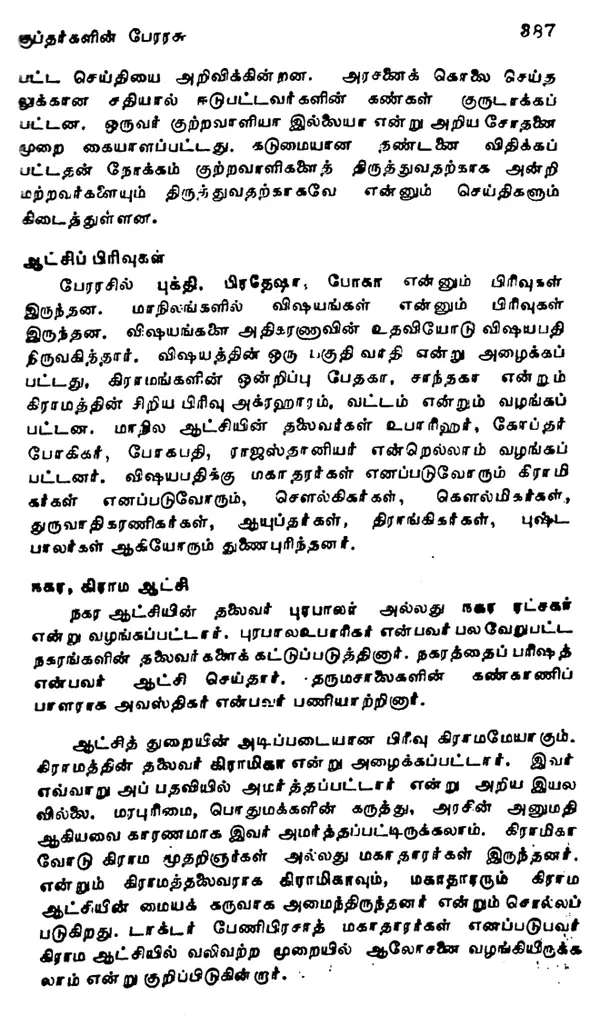 குப்தர்களின் பேரரசு 387
பட்ட செய்தியை அறிவிக்கின்றன. அரசனைக் கொலை செய்த
லுக்கான சதியால் ஈடுபட்டவர்களின் கண்கள் குருடாக்கப்
பட்டன. ஒருவர் குற்றவாளியா இல்லையா என்று அறிய சோதனை
முறை கையாளப்பட்டது. கடுமையான தண்டனை விதிக்கப்
பட்டதன் நோக்கம் குற்றவாளிகளைத் திருத்துவதற்காக அன்றி
மற்றவர்களையும் திருத்துவதற்காகவே என்னும் செய்திகளும்
கிடைத்துள்ளன.
ஆட்சிப் பிரிவுகள்
பேரரசில் புக்தி, பிரதேஷா, போகா என்னும் பிரிவுகள்
இருந்தன. மாநிலங்களில் விஷயங்கள் என்னும் பிரிவுகள்
இருந்தன. விஷயங்களை அதிகரணாவின் உதவியோடு விஷயபதி
நிருவகித்தார். விஷயத்தின் ஒரு பகுதி வாதி என்று அழைக்கப்
பட்டது, கிராமங்களின் ஒன்றிப்பு பேதகா, சாந்தகா என்றும்
கிராமத்தின் சிறிய பிரிவு அக்ரஹாரம், வட்டம் என்றும் வழங்கப்
பட்டன. மாநில ஆட்சியின் தலைவர்கள் உபாரிஹர், கோப்தர்
போகிகர், போகபதி, ராஜஸ்தானியர் என்றெல்லாம் வழங்கப்
பட்டனர். விஷயபதிக்கு மகாதரர்கள் எனப்படுவோரும் கிராமி
கர்கள் எனப்படுவோரும், சௌல்கிகர்கள், கௌல்மிகர்கள்,
துருவாதிகரணிகர்கள், ஆயுப்தர்கள், திராங்கிகர்கள், புஷ்ட
பாலர்கள் ஆகியோரும் துணைபுரிந்தனர்.
நகர, கிராம ஆட்சி
நகர ஆட்சியின் தலைவர் புரபாலர் அல்லது நகர ரட்சகர்
என்று வழங்கப்பட்டார். புரபாலஉபாரிகர் என்பவர் பல வேறுபட்ட
நகரங்களின் தலைவர்களைக் கட்டுப்படுத்தினார். நகரத்தைப் பரிஷத்
என்பவர் ஆட்சி செய்தார். தருமசாலைகளின் கண்காணிப்
பாளராக அவஸ்திகர் என்பவர் பணியாற்றினார்.
ஆட்சித் துறையின் அடிப்படையான பிரிவு கிராமமேயாகும்.
கிராமத்தின் தலைவர் கிராமிகா என்று அழைக்கப்பட்டார். இவர்
எவ்வாறு அப் பதவியில் அமர்த்தப்பட்டார் என்று அறிய இயல
வில்லை. மரபுரிமை, பொதுமக்களின் கருத்து, அரசின் அனுமதி
ஆகியவை காரணமாக இவர் அமர்த்தப்பட்டிருக்கலாம். கிராமிகா
வோடு கிராம மூதறிஞர்கள் அல்லது மகாதாரர்கள் இருந்தனர்.
என்றும் கிராமத்தலைவராக கிராமிகாவும், மகாதாரரும் கிராம
ஆட்சியின் மையக் கருவாக அமைந்திருந்தனர் என்றும் சொல்லப்
படுகிறது. டாக்டர் பேணிபிரசாத் மகாதாரர்கள் எனப்படுபவர்
கிராம ஆட்சியில் வலிவற்ற முறையில் ஆலோசனை வழங்கியிருக்க
லாம் என்று குறிப்பிடுகின்றார்.